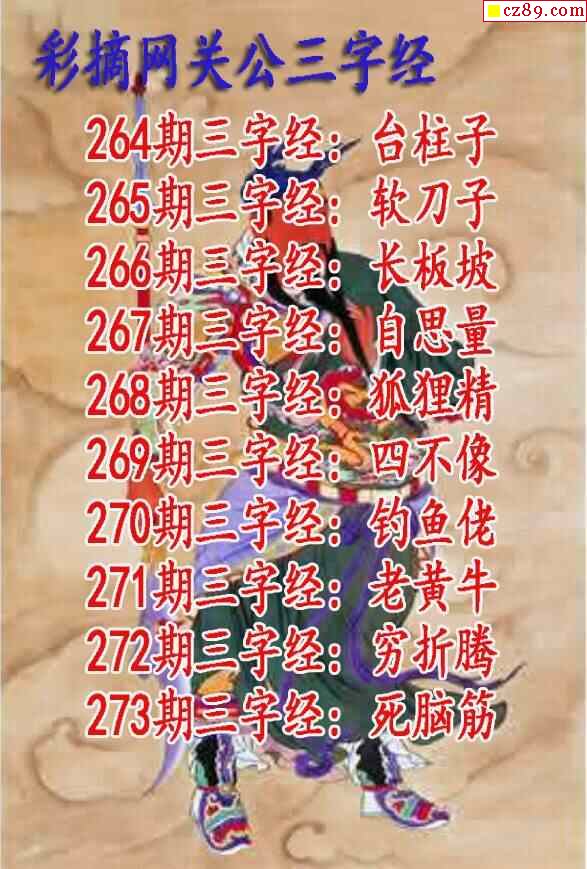 cz89.com
彩摘网关公三字经
264期三字经：台柱子
265期三字经：软刀子
266期三字经：长板坡
267期三字经：自思量
268期三字经：狐狸精
269期三字经：四不像
270期三字经：钓鱼佬
271期三字经：老黄牛
272期三字经：穷折腾
273期三字经：死脑筋